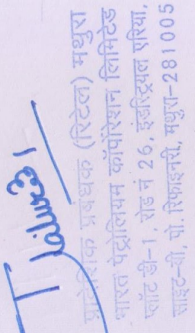 प्रादेशिक प्रबन्धक (रिटेल) मथुरा
भारत पेट्रोलियम कॉर्पोरेशन लिमिटेड
प्लॉट डी-1 रोड नं 26, इंडस्ट्रियल एरिया,
साईट-बी, पो रिफाइनरी, मथुरा-281005